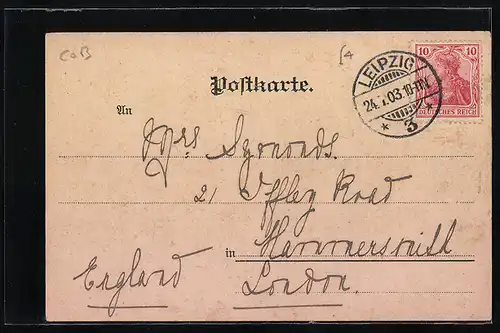 CoB
[4
Postkarte.
LEIPZIG
24.7.03.10-11V.
* 3 *
10 10
DEUTSCHES REICH
An
Mrs Symonds.
21 Iffley Road
in Hammersmith
England
London.